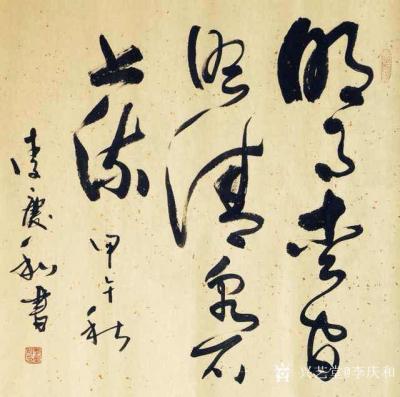 明月松间
照清泉石
上流
甲午秋
李慶和書
兴艺堂@李庆和